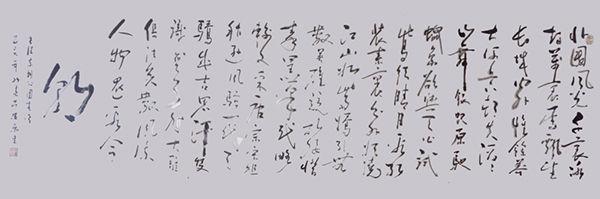 北国风光千里冰
封万里雪飘望
长城内外惟馀莽莽
大河上下顿失滔滔
山舞银蛇原驰
蜡象欲与天公试
比高须晴日看红
装素裹分外妖娆
江山如此多娇引无
数英雄竞折腰惜
秦皇汉武略
输文采唐宗宋祖
稍逊风骚一代天
骄成吉思汗只
识弯弓射大雕
俱往矣数风流
人物还看今
朝